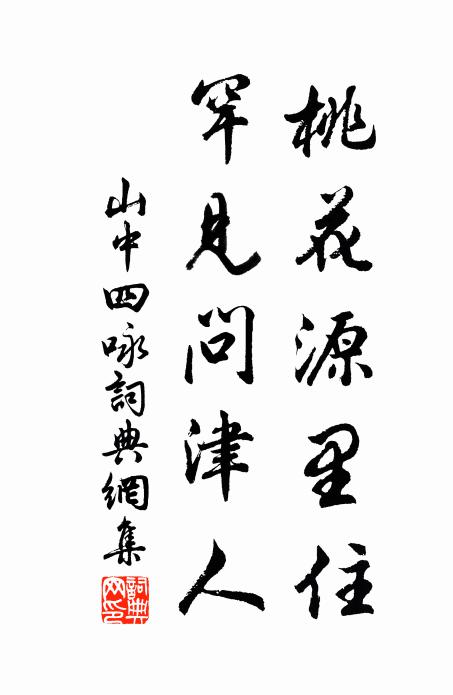 桃花源里住
罕見問津人
山中四咏詞典網集
詞典网印